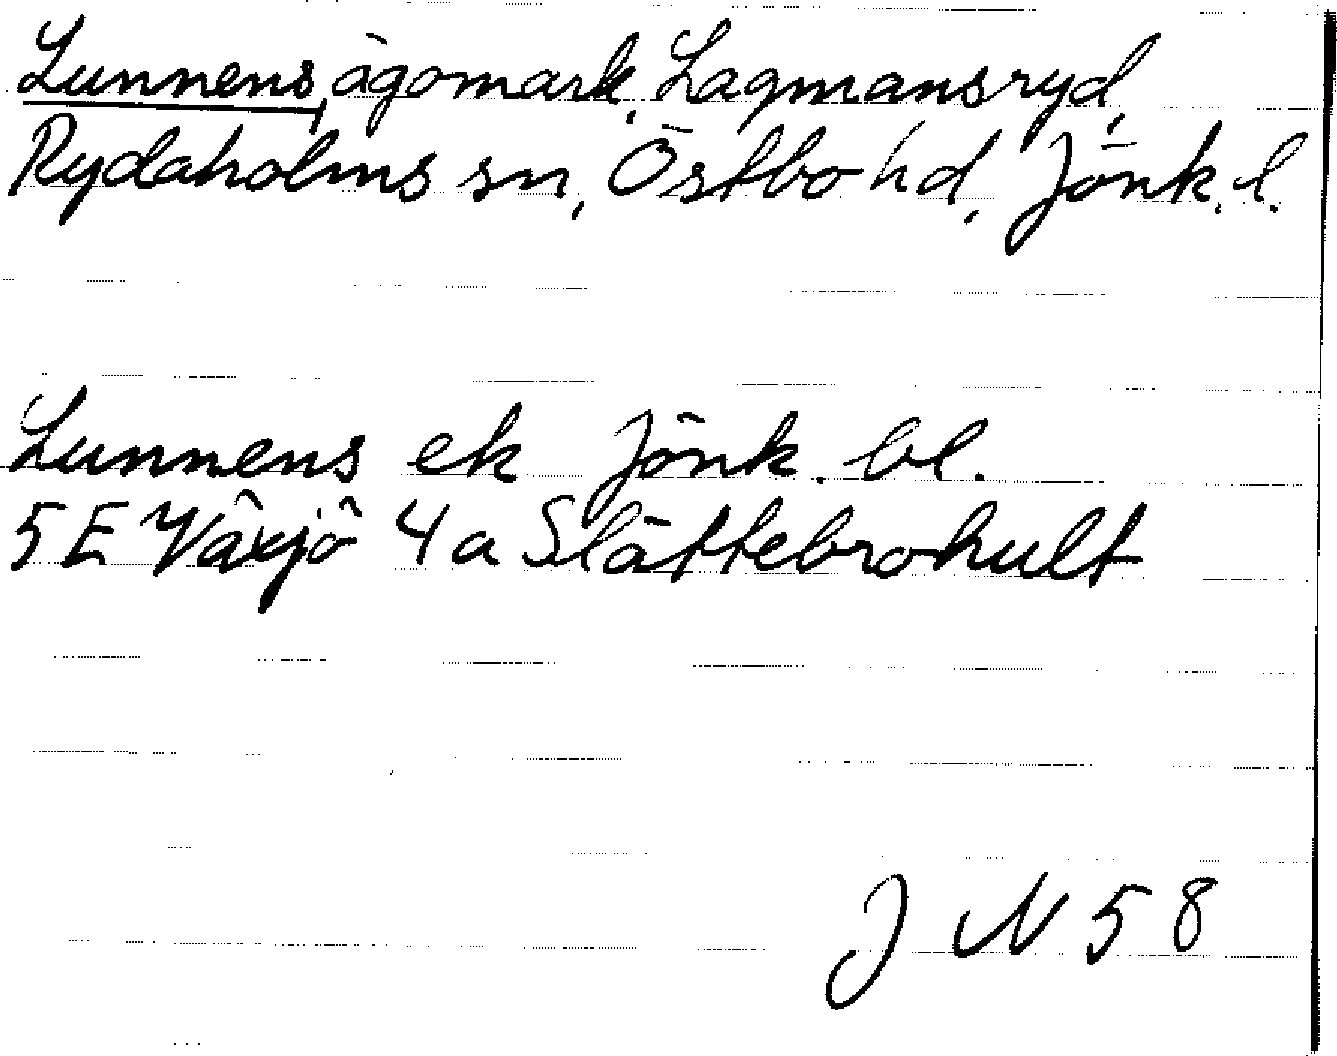 Lunnens, ägomark, Lagmansryd,
Rydaholms sn, Östbo hd, Jönk. l.
Lunnens ek Jönk. bl.
5 E Växjö 4 a Slättebrohult
J N 58